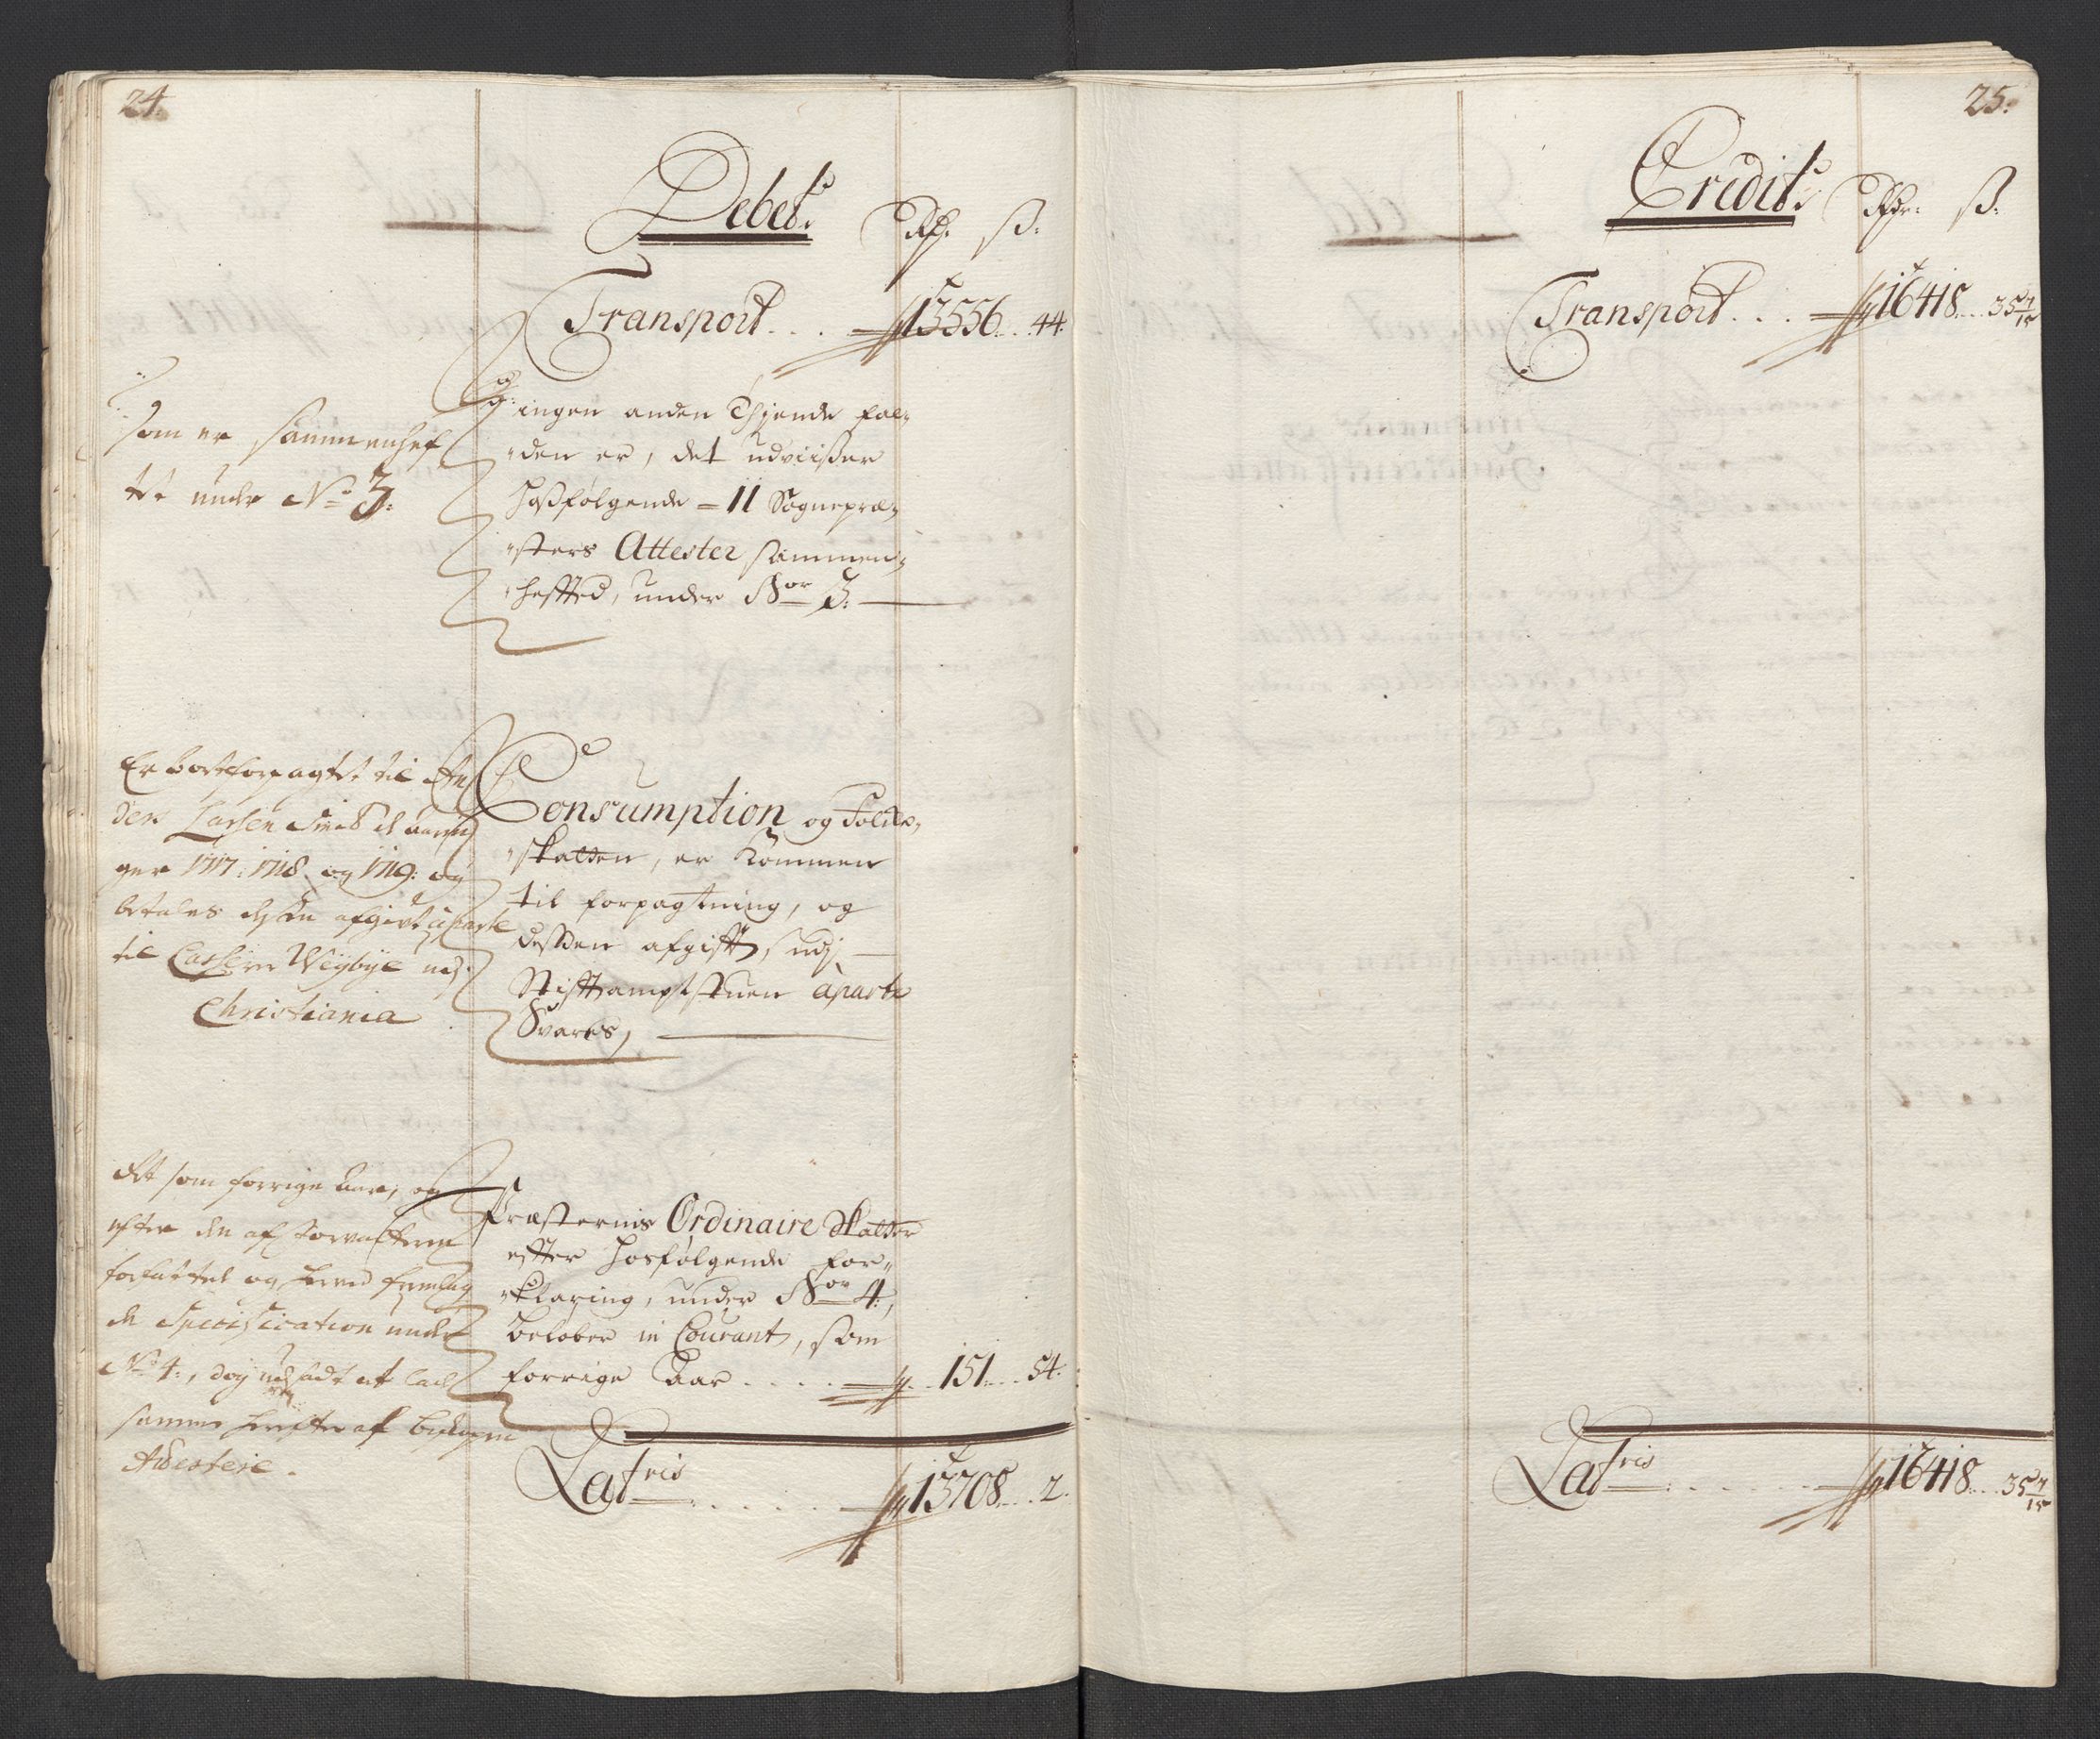 24.
Debet. Rd. ß.
Transport . . . 13556 . . 44.
Som er sammenhef
tet under No 3:
og ingen anden Thjende fal„
„den er, det udviißer
hoßfølgende = 11 Sognepræ„
„sters Attester sammen„
„heffted, under Nor 3.
Er bortforpagtet til
den Larsen
ger 1717: 1718 og 1719: og
betales afgivt aparte
til Casserer Weybye
Christiania
Consumption og Folche„
„skatten, er kommen
til forpagtning, og
deßen afgifft, udj
Stifftamptstuen aparte
Svares,
som forrige Aar, og
efter den af
forfattet og fremlag
de Specification under
No 4:, dog at lade
samme herefter af
Attestere.
Præsternis Ordinaire Skatter
efter hosfølgende for„
„klaring, under Nor 4:,
beløber in Courant, som
forrige Aar . . . . 151 . . 54.
Latris . . . . . 13708 . . 2.
25.
Credit. Rdr. ß.
Transport . . . 16418 . . 35 7/15
Latris . . . . . 16418 . . 35 7/15